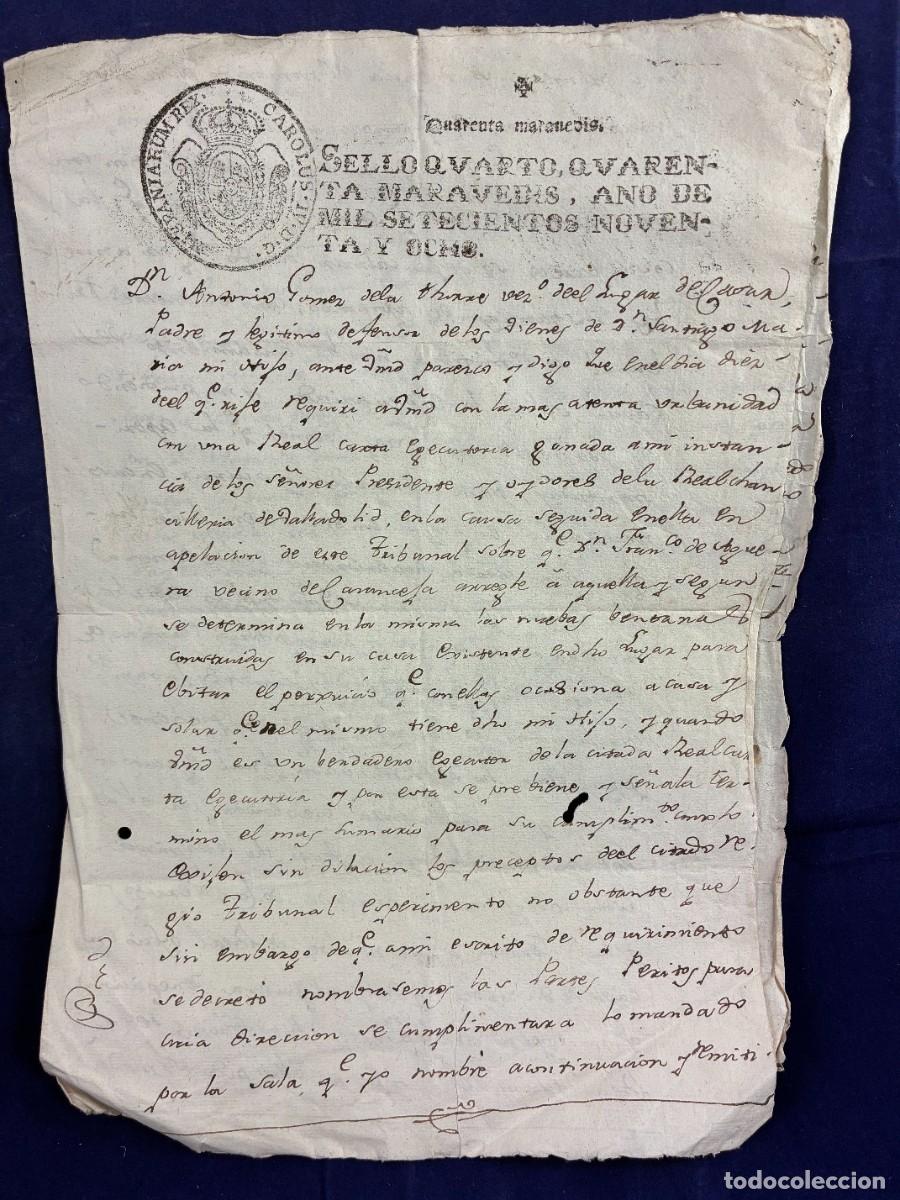 Quarenta maravedis.
CAROLUS IV D.G. HISPANIARUM REX.
SELLO QVARTO, QVAREN-
TA MARAVEDIS, AÑO DE
MIL SETECIENTOS NOVEN-
TA Y OCHO.
Dn. Antonio Gomez dela thorre vezo. deel Lugar de
Padre y legitimo defensor de los bienes de Dn Santiago Ma-
ria mi Hijo, ante Vmd parezco y digo que enel dia diez
deel qe. rije requiri a Vmd con la mas atenta urbanidad
con una Real carta egecutoria ganada a mi instan-
cia de los señores Presidente y oydores dela Real chan-
cilleria de Valladolid, en la causa seguida enella en
apelacion de este Tribunal sobre qe. Dn. Franco. de Ague-
ra vecino de Caranceja arregle a aquella y segun
se determina en la misma las nuebas bentanas
construidas en su casa existente en dho Lugar para
ebitar el perxuicio qe. con ellas ocasiona a casa y
solar qe. enel mismo tiene dho mi Hijo, y quando
Vmd es un berdadero egecutor de la citada Real car-
ta egecutoria y por esta se prebiene y señala ter-
mino el mas sumario para su cumplimto. como lo
exijen sin dilacion los preceptos deel citado re-
gio Tribunal esperimento no obstante que
sin embargo de qe. a mi escrito de requirimiento
se decretó nombrasemos las Partes Peritos para
cuia direccion se cumplimentara lo mandado
por la sala, qe. yo nombré acontinuacion y remiti
todocoleccion